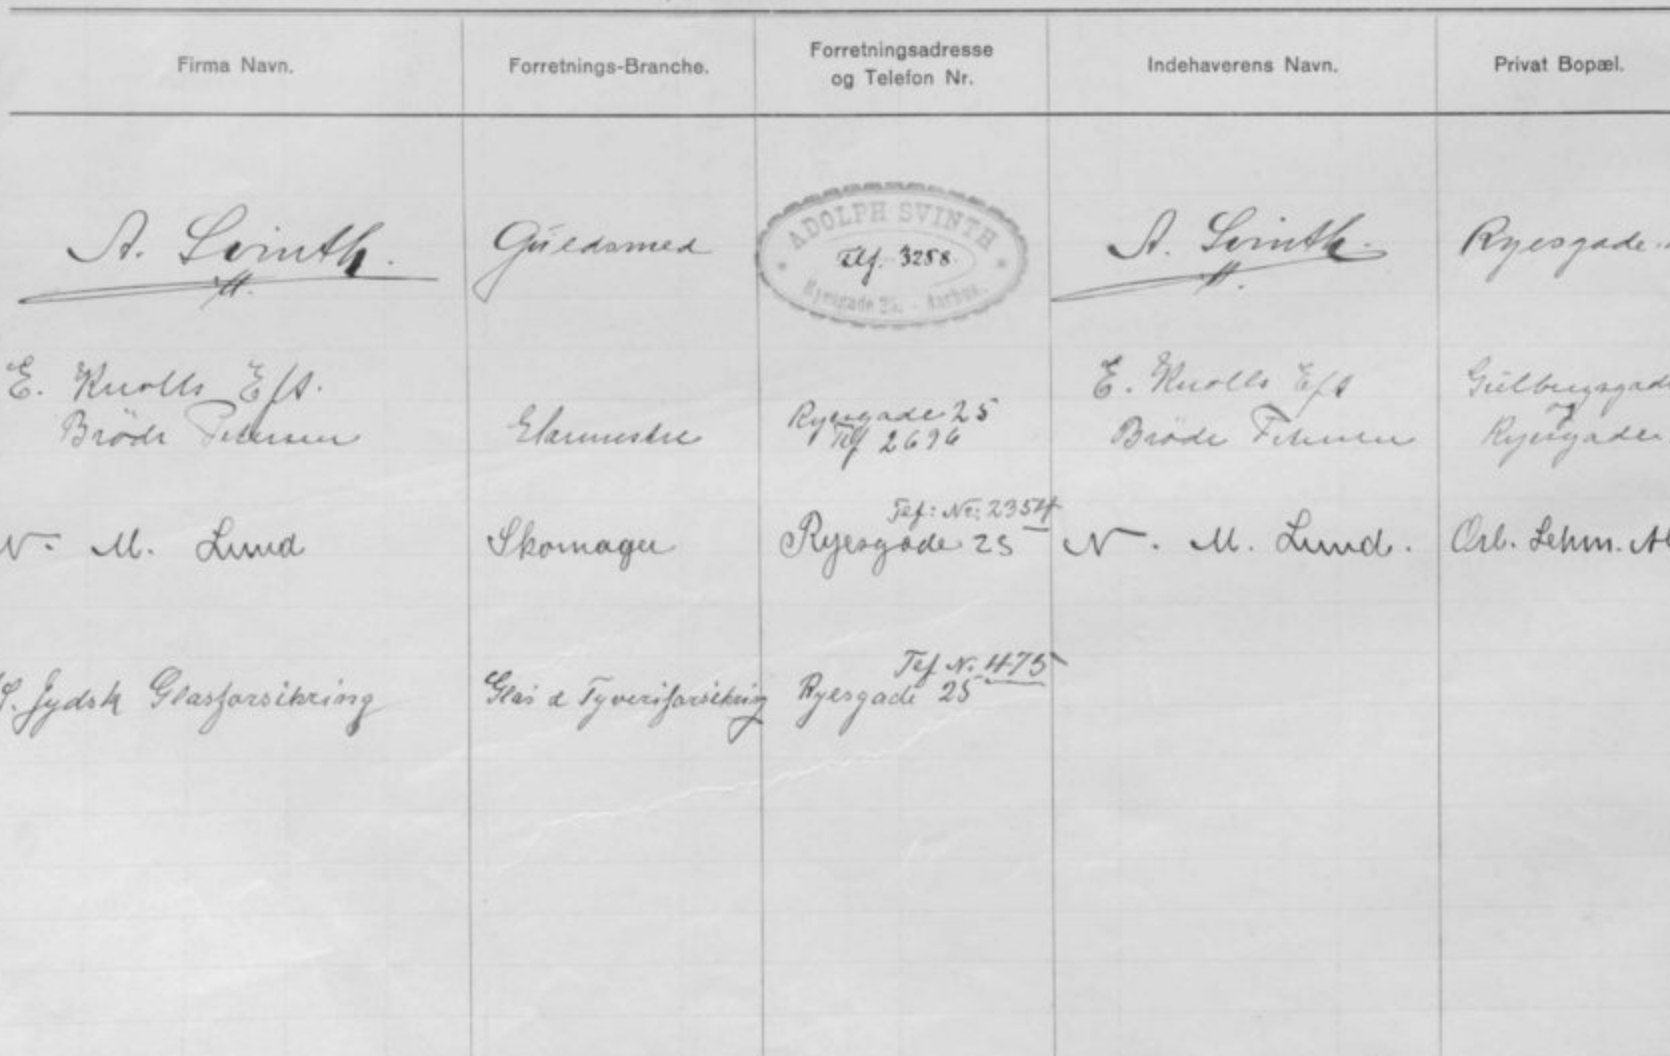 Firma Navn.
Forretnings-Branche.
Forretningsadresse
og Telefon Nr.
Indehaverens Navn.
Privat Bopæl.
A. Svinth.
Guldsmed
ADOLPH SVINTH
Tlf. 3258.
Ryesgade 25. - Aarhus.
A. Svinth.
Ryesgade
E. Knolls Eft.
Brödr Petersen
Glarmestre
Ryesgade 25
Tlf 2696
E. Knolls Eft
Brödr Petersen
Gulbergsgade
og
Ryesgade
N. M. Lund
Skomager
Tef: Nr: 2354
Ryesgade 25
N. M. Lund.
Orl. Lehm. Al
S. Jydsk Glasforsikring
Glas & Tyveriforsikring
Tef Nr. 475
Ryesgade 25